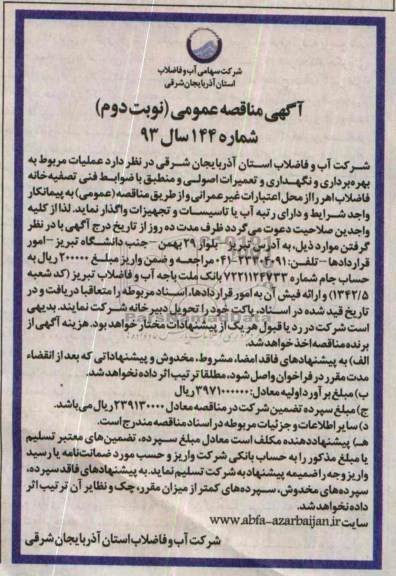 شرکت سهامی آب و فاضلاب
استان آذربایجان شرقی
آگهی مناقصه عمومی (نوبت دوم)
شماره ۱۴۴ سال ۹۳
شرکت آب و فاضلاب استان آذربایجان شرقی در نظر دارد عملیات مربوط به
بهره‌برداری و نگهداری و تعمیرات اصولی و منطبق با ضوابط فنی تصفیه‌خانه
فاضلاب اهر را از محل اعتبارات غیر عمرانی و از طریق مناقصه (عمومی) به پیمانکار
واجد شرایط و دارای رتبه آب یا تاسیسات و تجهیزات واگذار نماید. لذا از کلیه
واجدین صلاحیت دعوت می‌گردد ظرف مدت ده روز از تاریخ درج آگهی با در نظر
گرفتن موارد ذیل، به آدرس تبریز - بلوار ۲۹ بهمن - جنب دانشگاه تبریز - امور
قراردادها - تلفن: ۰۴۱-۳۳۳۰۴۰۹۱ مراجعه و ضمن واریز مبلغ ۲۰۰۰۰۰ ریال به
حساب جام شماره ۷۲۲۱۱۲۴۷۳۳ بانک ملت باجه آب و فاضلاب تبریز (کد شعبه
۱۳۴۲/۵) و ارائه فیش آن به امور قراردادها، اسناد مربوطه را متعاقبا دریافت و در
تاریخ قید شده در اسناد، پاکت خود را تحویل دبیرخانه شرکت نمایند. بدیهی
است شرکت در رد یا قبول هر یک از پیشنهادات مختار خواهد بود. هزینه آگهی از
برنده مناقصه اخذ خواهد شد.
الف) به پیشنهادهای فاقد امضا، مشروط، مخدوش و پیشنهاداتی که بعد از انقضاء
مدت مقرر در فراخوان واصل شود، مطلقا ترتیب اثر داده نخواهد شد.
ب) مبلغ برآورد اولیه معادل: ۳۹۷۱۰۰۰۰۰۰ ریال
ج) مبلغ سپرده تضمین شرکت در مناقصه معادل ۲۳۹۱۳۰۰۰۰ ریال می‌باشد.
د) سایر اطلاعات و جزئیات مربوطه در اسناد مناقصه مندرج است.
هـ) پیشنهاددهنده مکلف است معادل مبلغ سپرده، تضمین‌های معتبر تسلیم
یا مبلغ مذکور را به حساب بانکی شرکت واریز و حسب مورد ضمانت‌نامه یا رسید
واریز وجه را ضمیمه پیشنهاد به شرکت تسلیم نماید. به پیشنهادهای فاقد سپرده،
سپرده‌های مخدوش، سپرده‌های کمتر از میزان مقرر، چک و نظایر آن ترتیب اثر
داده نخواهد شد.
سایت www.abfa-azarbaijan.ir
شرکت آب و فاضلاب استان آذربایجان شرقی